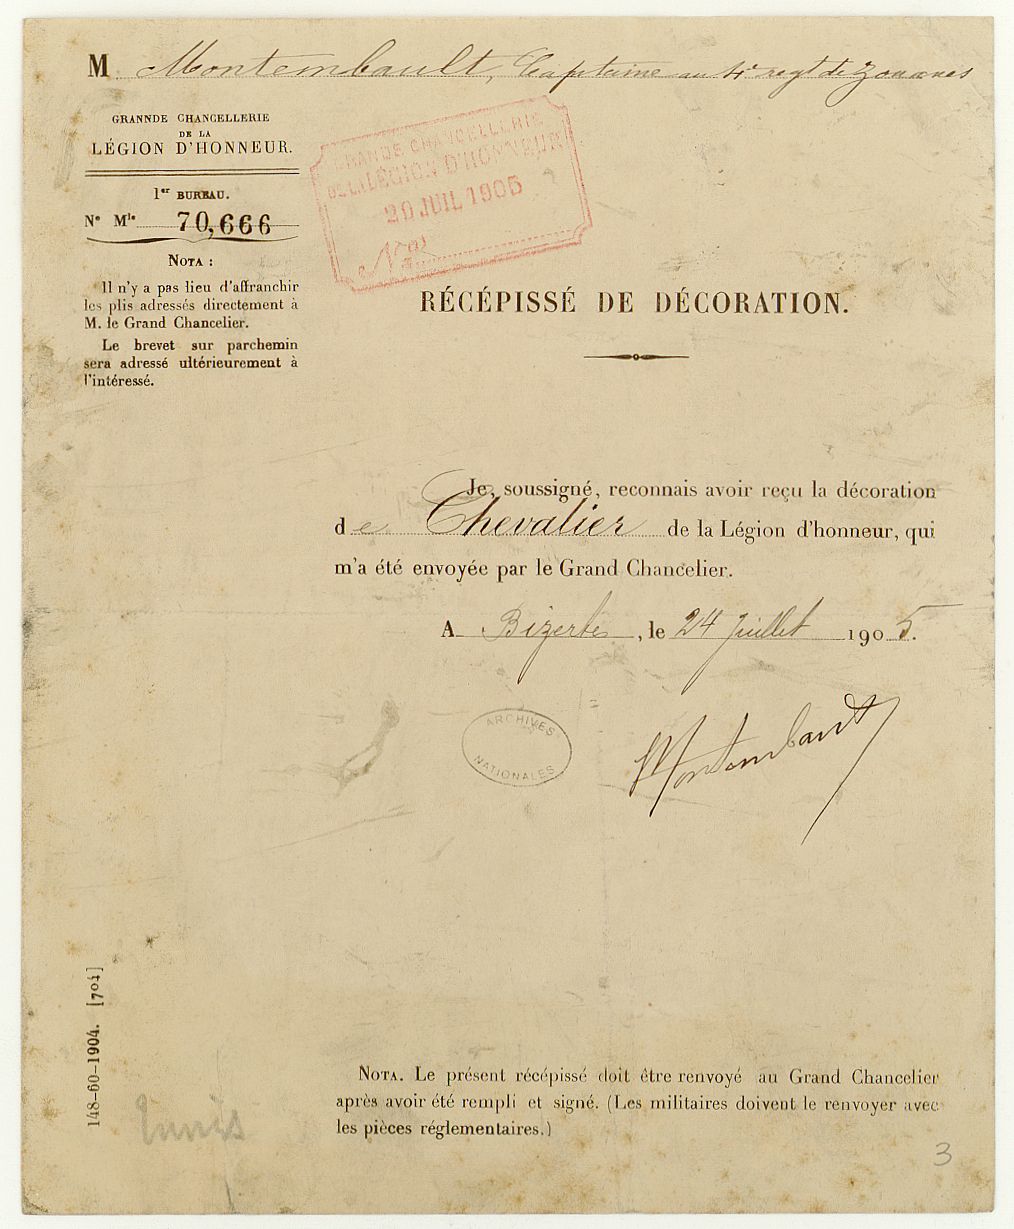 M. Montembault, Capitaine au 4e regt de Zouaves
GRANNDE CHANCELLERIE
DE LA
LÉGION D'HONNEUR.
1er BUREAU.
N° Mle 70,666
NOTA :
Il n'y a pas lieu d'affranchir
les plis adressés directement à
M. le Grand Chancelier.
Le brevet sur parchemin
sera adressé ultérieurement à
l'intéressé.
GRANDE CHANCELLERIE
DE LA LÉGION D'HONNEUR
20 JUIL 1905
RÉCÉPISSÉ DE DÉCORATION.
Je, soussigné, reconnais avoir reçu la décoration
de Chevalier de la Légion d'honneur, qui
m'a été envoyée par le Grand Chancelier.
A Bizerte, le 24 Juillet 1905.
Montembault
ARCHIVES
NATIONALES
148-60-1904. [704]
Tunis
NOTA. Le présent récépissé doit être renvoyé au Grand Chancelier
après avoir été rempli et signé. (Les militaires doivent le renvoyer avec
les pièces réglementaires.)
3